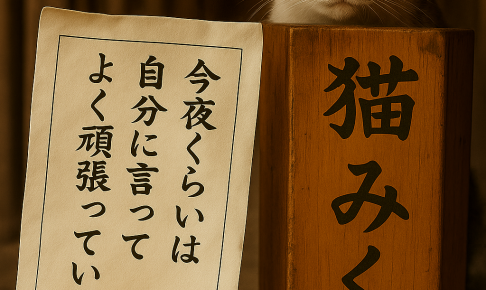 今夜くらいは
自分に言って
よく頑張ってい
猫みく